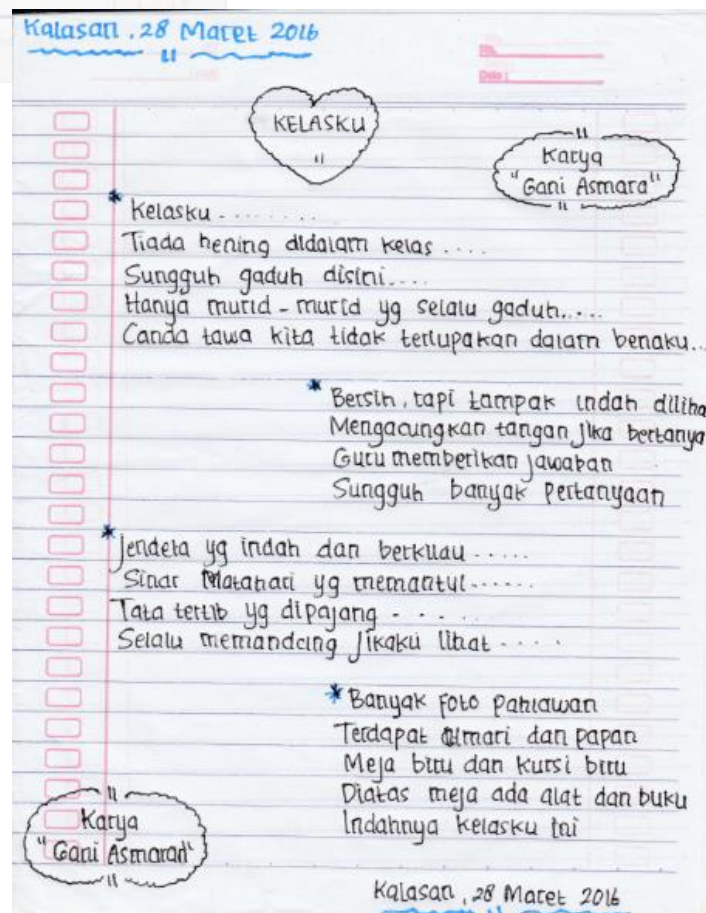 Kalasan, 28 Maret 2016
No.
Date :
KELASKU
Karya
"Gani Asmara"
* Kelasku .........
Tiada hening didalam kelas ....
Sungguh gaduh disini....
Hanya murid-murid yg selalu gaduh.....
Canda tawa kita tidak terlupakan dalam benaku...
* Bersih, tapi tampak indah diliha
Mengacungkan tangan jika bertanya
Guru memberikan jawaban
Sungguh banyak Pertanyaan
* jendela yg indah dan berkilau .....
Sinar Matahari yg memantul......
Tata tertib yg dipajang ......
Selalu memandang jikaku lihat ....
* Banyak foto pahlawan
Terdapat almari dan papan
Meja biru dan kursi biru
Diatas meja ada alat dan buku
Indahnya kelasku ini
Karya
"Gani Asmarad"
Kalasan, 28 Maret 2016